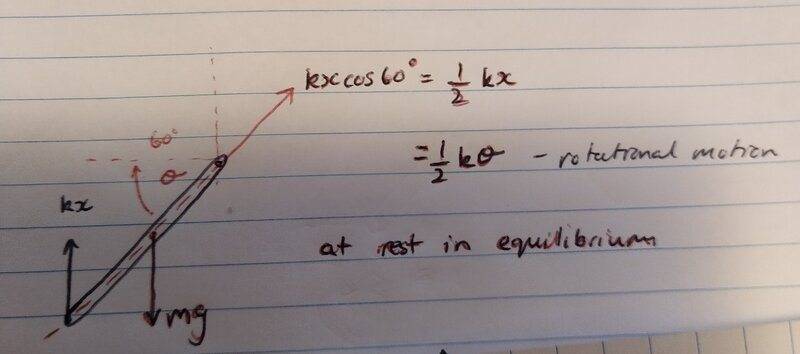 kx cos 60° = 1/2 kx
60°
= 1/2 kθ - rotational motion
θ
kx
at rest in equilibrium
mg